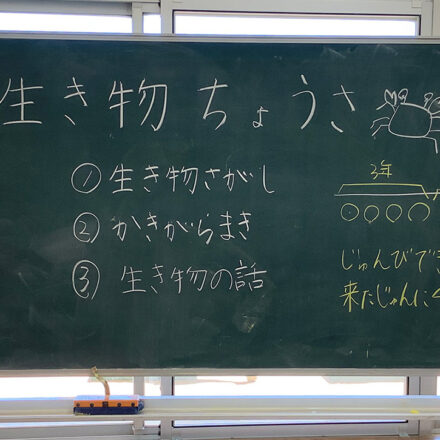 生き物ちょうさ
①生き物さがし
②かきがらまき
③生き物の話
3年
じゅんびでき
来たじゅんに